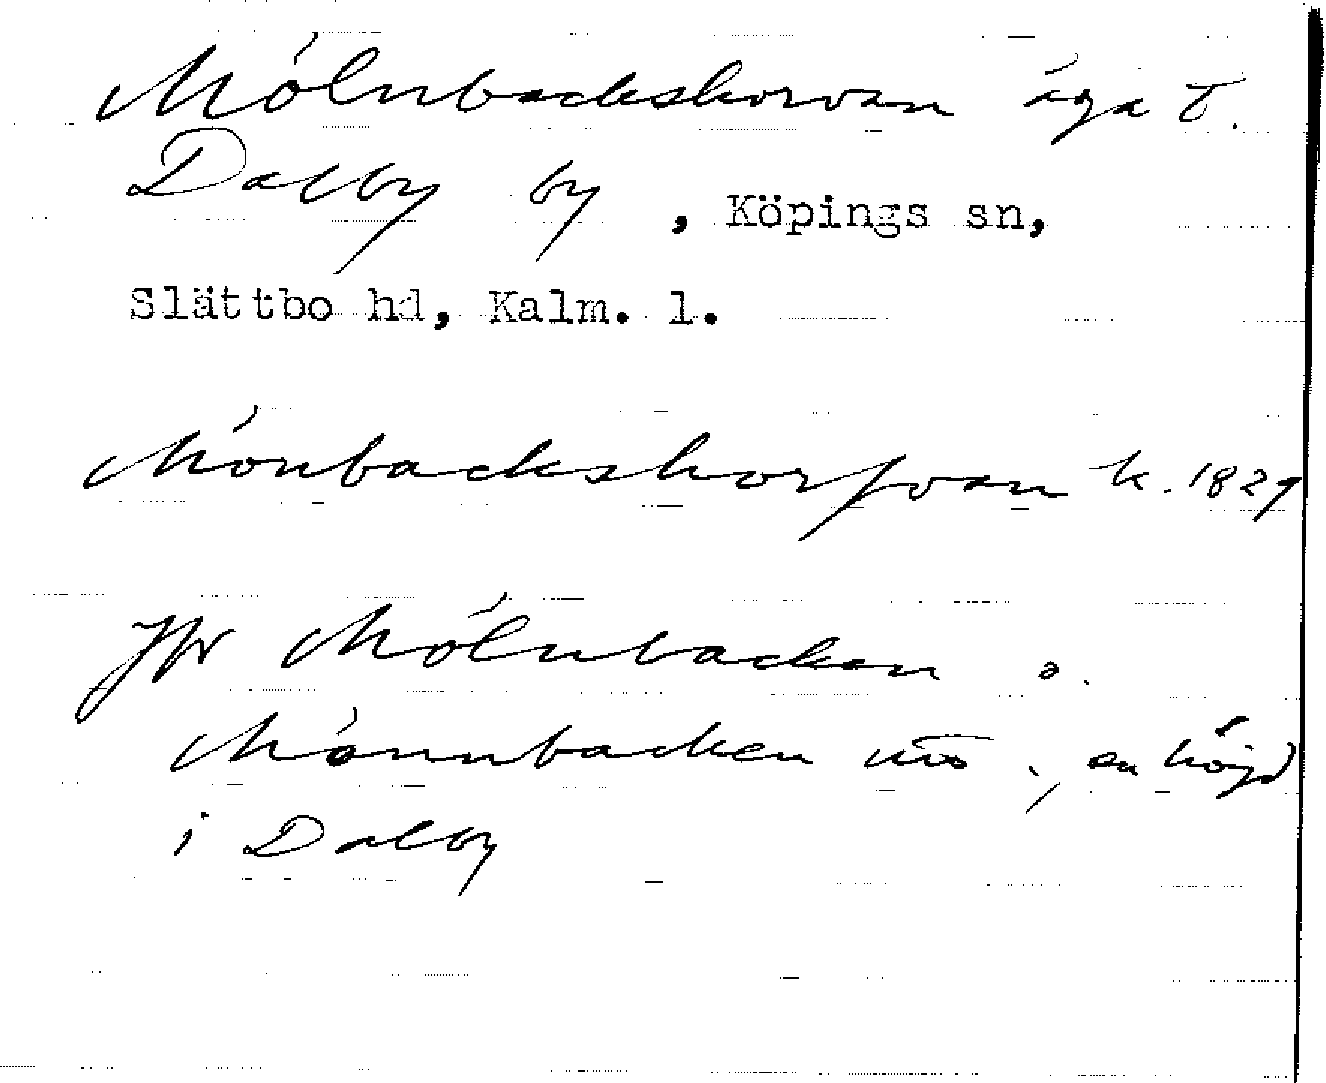 Mölnbackskorvan äga t.
Dalby by, Köpings sn,
Slättbo hd, Kalm. l.
Mönbackskorfvan k. 1829
Jfr Mölnbacken o.
Mönnbacken uno ., en höjd
i Dalby